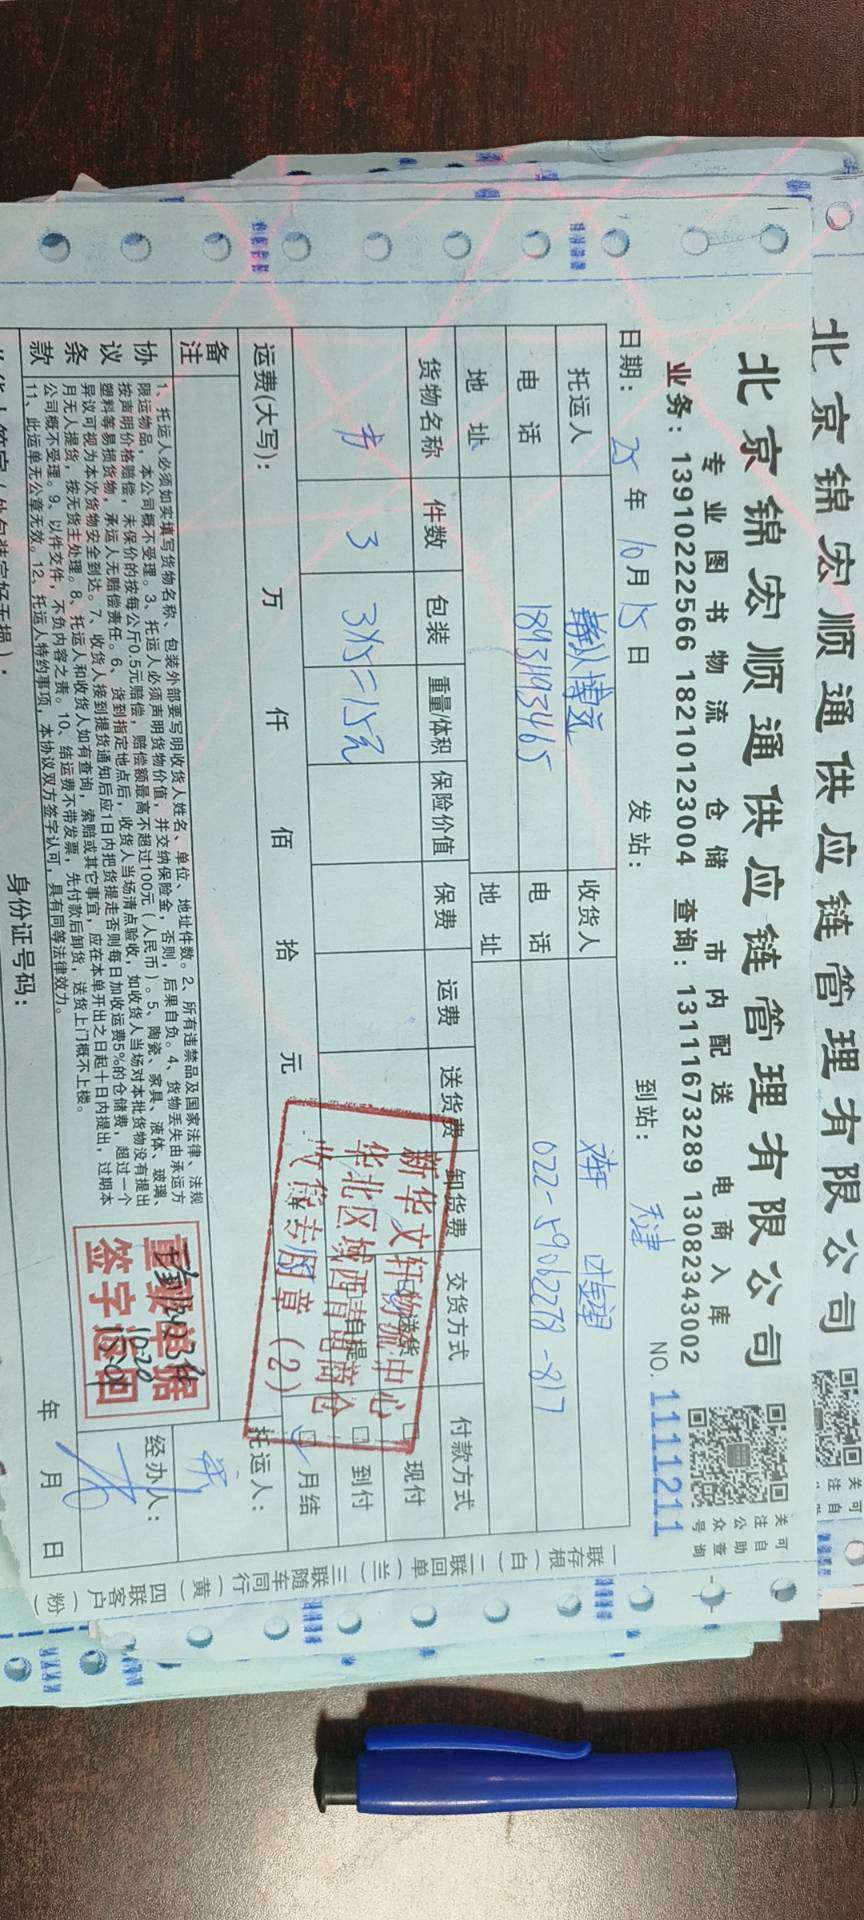 北京锦宏顺通供应链管理有限公司
北京锦宏顺通供应链管理有限公司
专业图书物流 仓储 市内配送 电商入库
业务：13910222566 18210123004 查询：13111673289 13082343002
关注公众号
可自助查询
日期：25年10月15日 发站： 到站：天津 NO. 1111211
托运人 博远 收货人
电话 18931193465 电话 022-59062278-817
地址 地址
货物名称 件数 包装 重量/体积 保险价值 保费 运费 送货费 卸货费 交货方式 付款方式
书 3 3×5=15元 送货 自提 现付 到付 月结
运费(大写)： 万 仟 佰 拾 元
新华文轩物流中心
华北区域西青电商仓
收货专用章（2）
备注
托运人：
重要单据
签字返回
10.20
经办人：
协议条款
1、托运人必须如实填写货物名称、包装外部要写明收货人姓名、单位、地址件数。2、所有违禁品及国家法律、法规
限运物品，本公司概不受理。3、托运人必须声明货物价值，并交纳保险金，否则，后果自负。4、货物丢失由承运方
按声明价格赔偿，未保价的按每公斤0.5元赔偿，赔偿额最高不超过100元（人民币）。5、陶瓷、家具、液体、玻璃、
塑料等易损货物，承运人无赔偿责任。6、货到指定地点后，收货人当场清点验收，如收货人当场对本批货物没有提出
异议可视为本次货物安全到达。7、收货人接到提货通知后应1日内把货提走否则每日加收运费5%的仓储费，超过一个
月无人提货，按无货主处理。8、托运人和收货人如有查询，索赔或其它事宜，应在本单开出之日起十日内提出，过期本
公司概不受理。9、以件交件，不负内容之责。10、结运费不带发票，先付款后卸货，送货上门概不上楼。
11、此运单无公章无效。12、托运人特约事项，本协议双方签字认可，具有同等法律效力。
年 月 日
身份证号码：
一联存根（白）二联回单（兰）三联随车同行（黄）四联客户（粉）